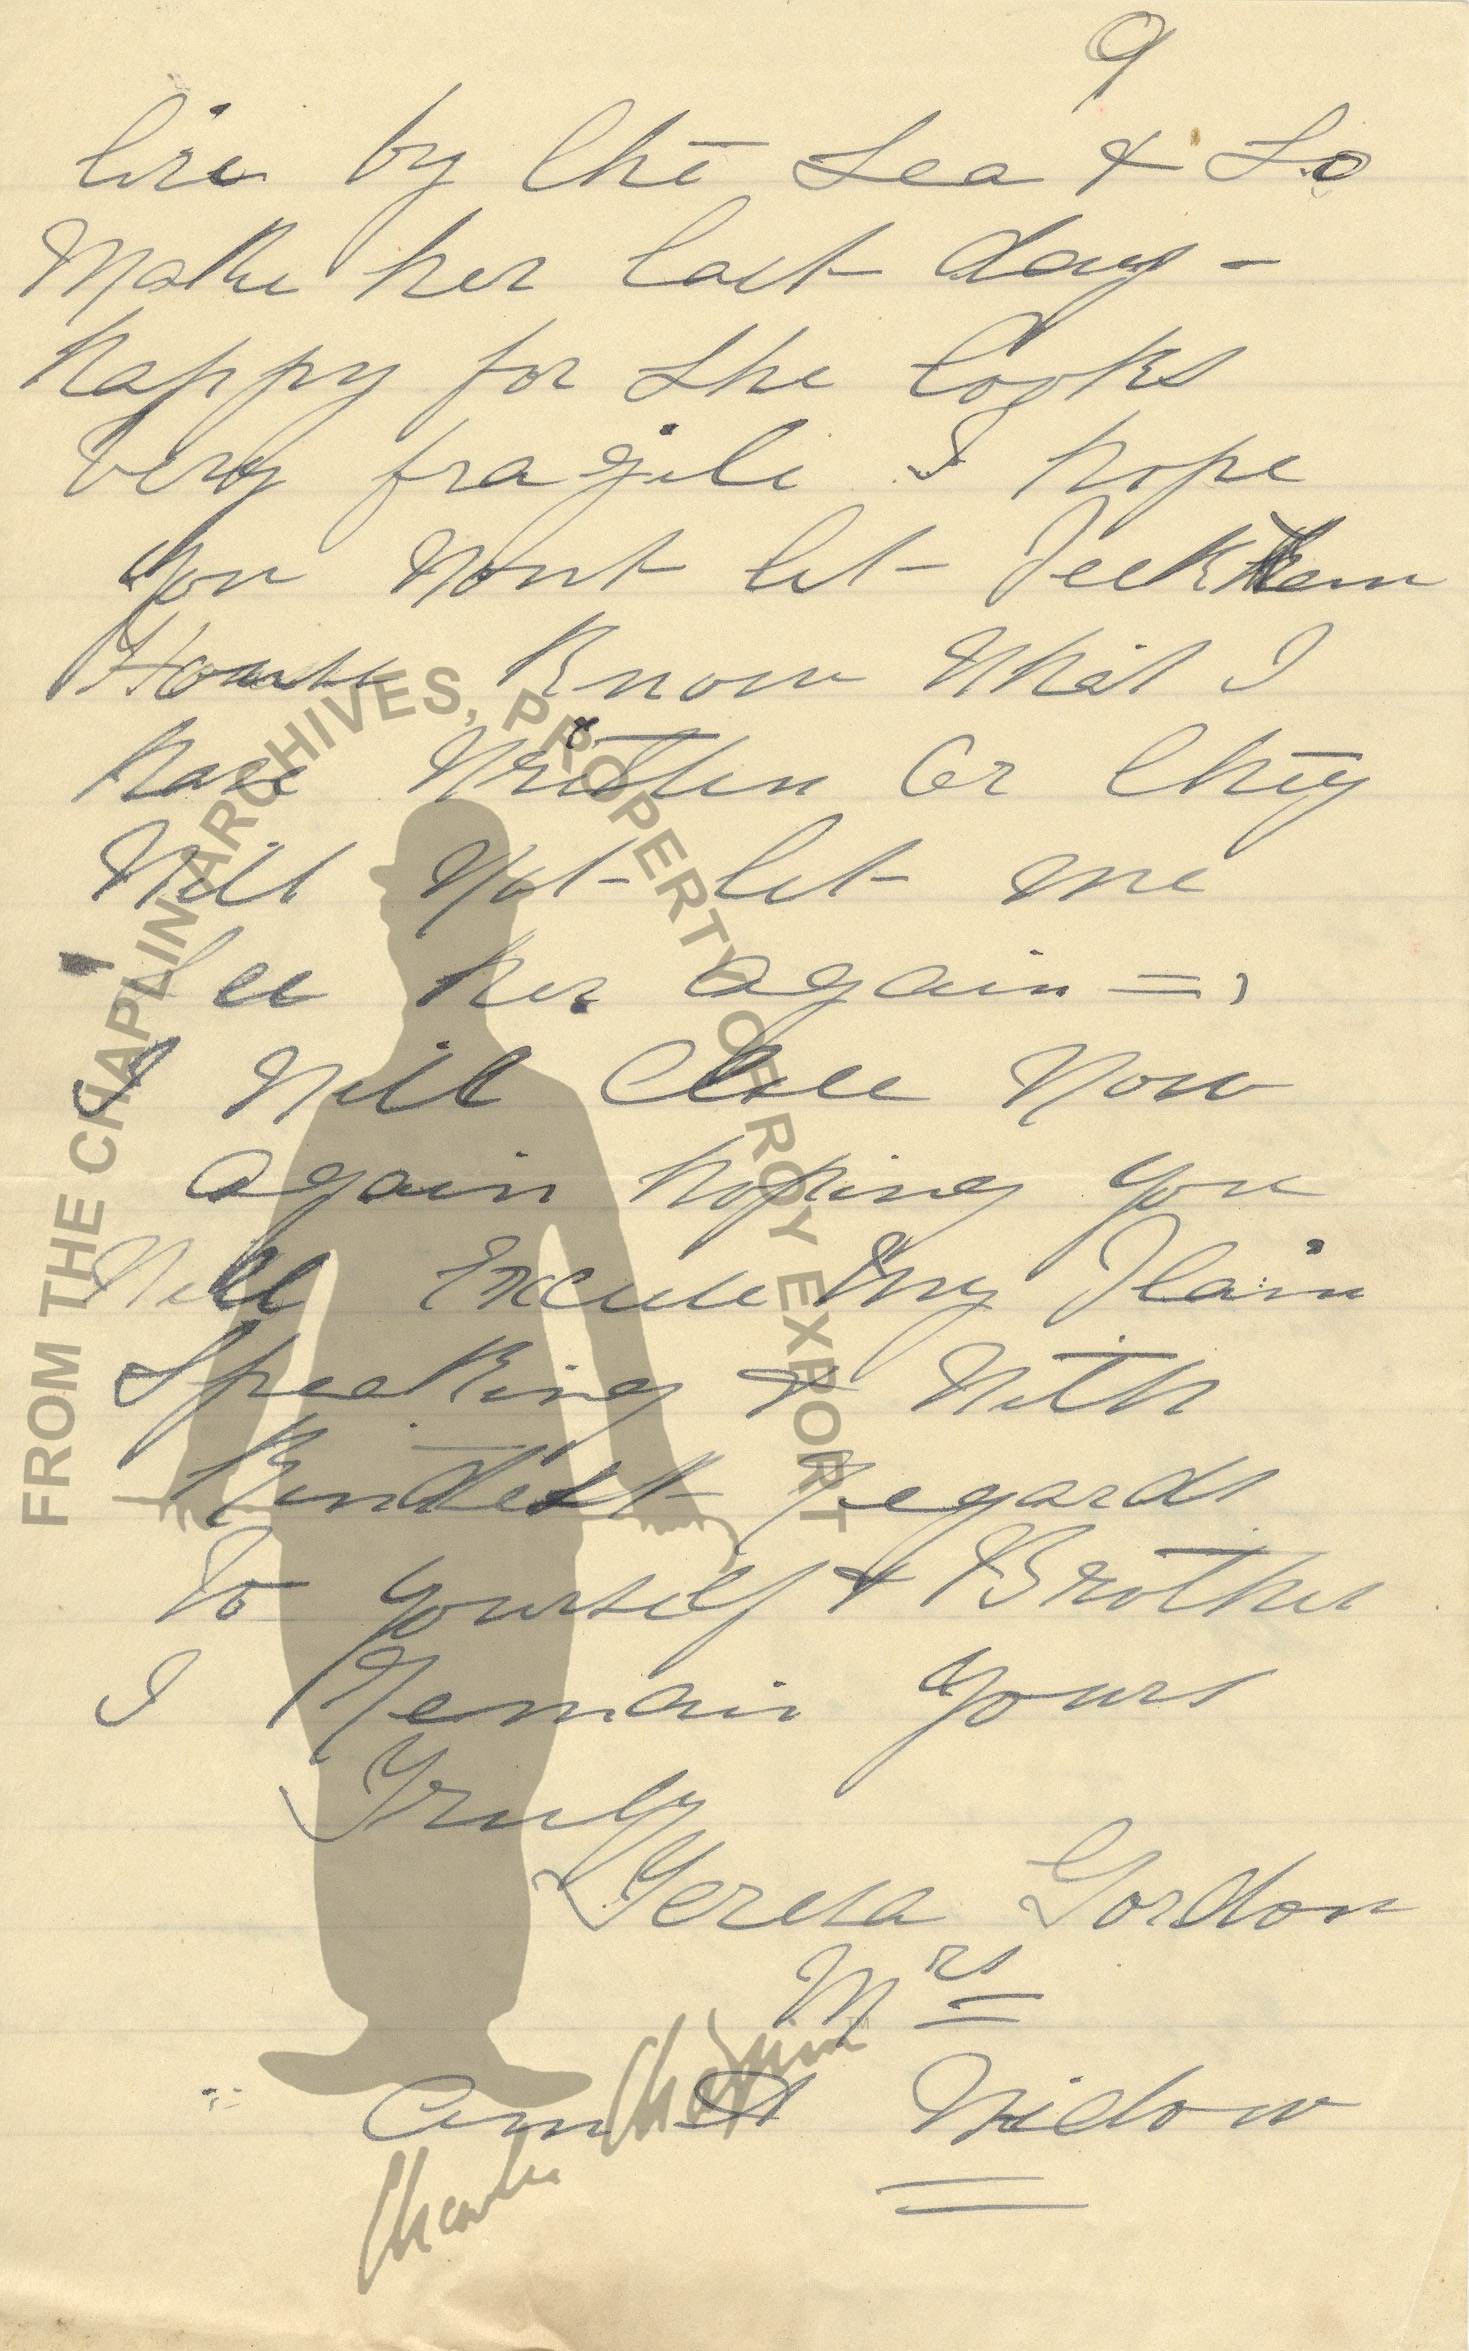 9
live by the Sea & So
Make her last day -
happy for she looks
very fragile I hope
you Wont let Peckham
House Know What I
have Written Or they
Will Not let me
See her again =,
I Will Close Now
again hoping you
Will Excuse My Plain
Speaking & With
Kindest Regards
To yourself & Brother
I Remain Yours
Truly
Teresa Gordon
Mrs
am A Widow
FROM THE CHAPLIN ARCHIVES, PROPERTY OF ROY EXPORT
Charlie Chaplin